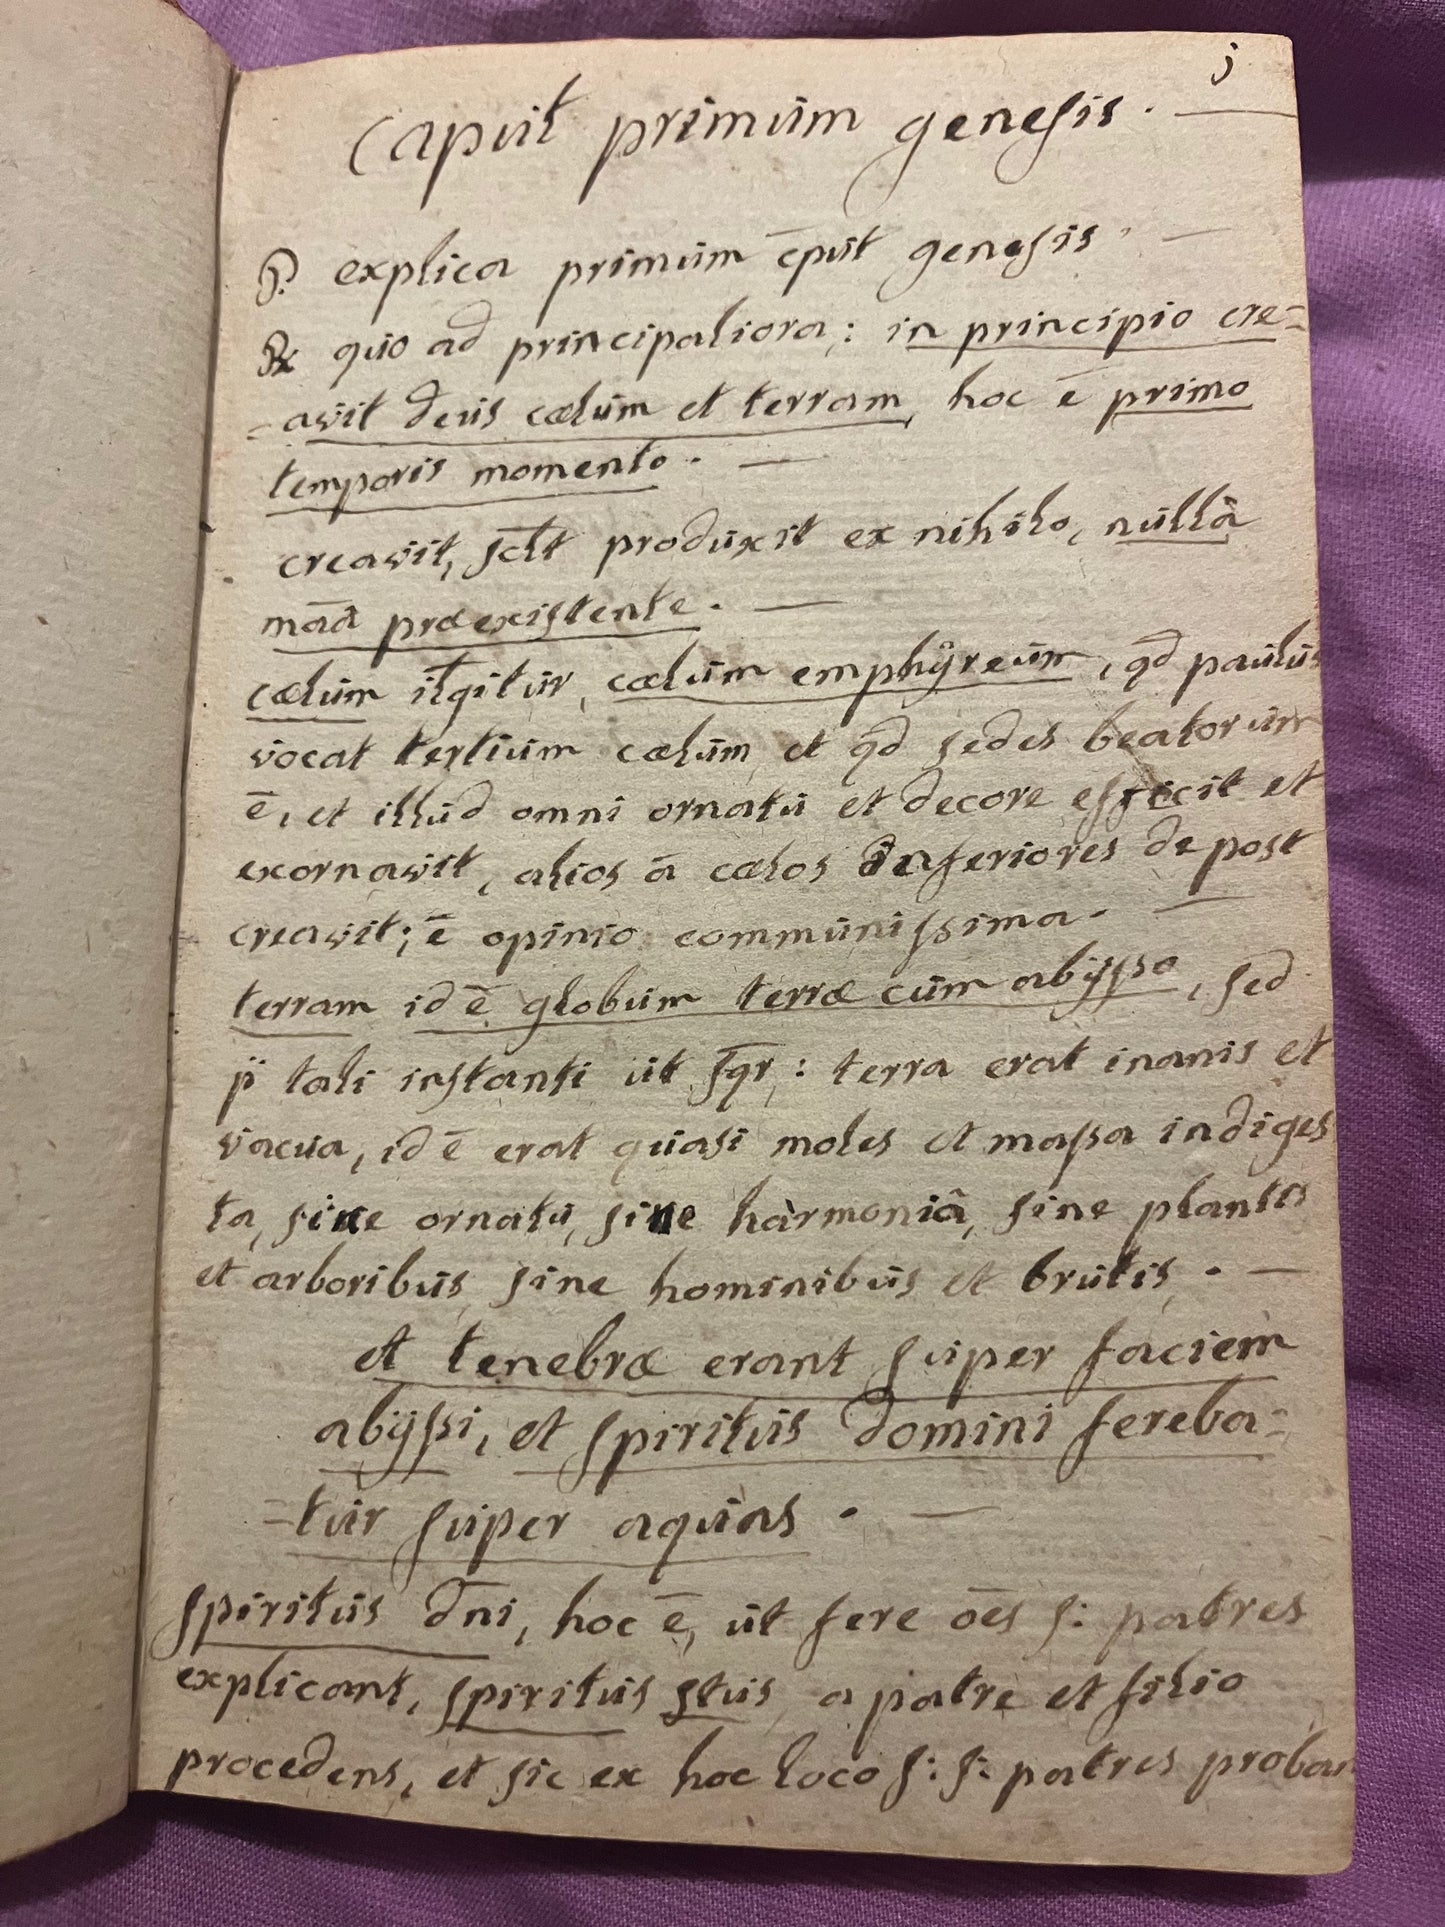 j
Caput primum genesis. —
P. explica primum c̄put genesis. —
℞ quo ad principaliora: in principio cre=
=avit deus cælum et terram, hoc ē primo
temporis momento. —
creavit, sc̄lt produxit ex nihilo, nullâ
mãâ præexistente. —
cælum itgitur, cælum emphÿreum, qd̄ paulus
vocat tertium cælum, et qd̄ sedes beatorum
ē, et illud omni ornatu et decore effecit et
exornavit, alios ā cælos inferiores de post
creavit; ē opinio communissima. —
terram id ē globum terræ cum abÿsso, sed
p̈ tali instanti ut sq̄r: terra erat inanis et
vacua, id ē erat quasi moles et massa indiges
ta, sine ornatu, sine harmoniâ, sine plantis
et arboribus, sine hominibus et brutis. —
et tenebræ erant super faciem
abÿssi, et spiritus domini fereba=
=tur super aquas. —
spiritus dn̄i, hoc ē, ut fere oēs s: patres
explicant, spiritus stus, a patre et filio
procedens, et sic ex hoc loco s: s: patres proban